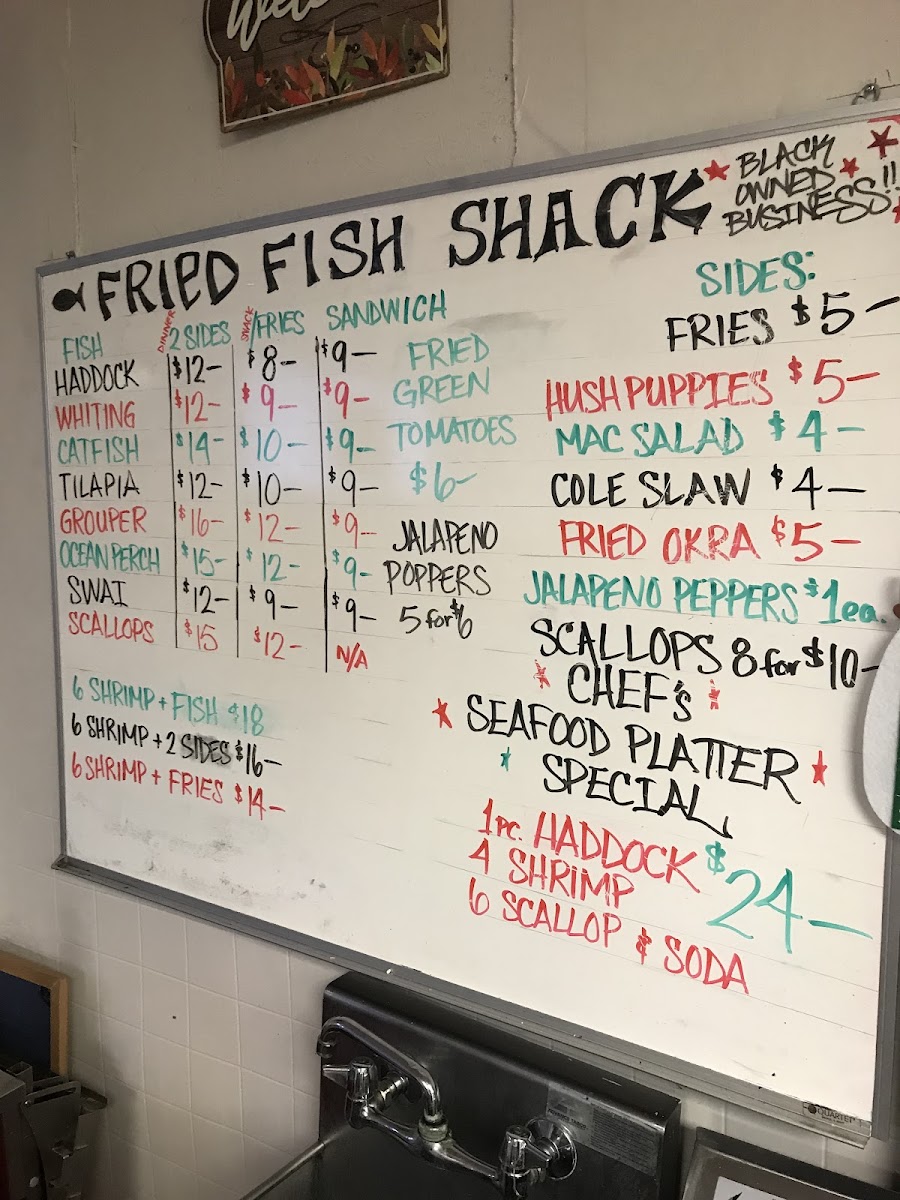 Welco
FRIED FISH SHACK
BLACK
OWNED
BUSINESS!!
FISH DINNER 2 SIDES SNACK /FRIES SANDWICH
HADDOCK $12- $8- $9-
WHITING $12- $9- $9-
CATFISH $14- $10- $9-
TILAPIA $12- $10- $9-
GROUPER $16- $12- $9-
OCEAN PERCH $15- $12- $9-
SWAI $12- $9- $9-
SCALLOPS $15 $12- N/A
6 SHRIMP + FISH $18
6 SHRIMP + 2 SIDES $16-
6 SHRIMP + FRIES $14-
FRIED
GREEN
TOMATOES
$6-
JALAPENO
POPPERS
5 for $6
SIDES:
FRIES $5-
HUSH PUPPIES $5-
MAC SALAD $4-
COLE SLAW $4-
FRIED OKRA $5-
JALAPENO PEPPERS $1ea.
SCALLOPS 8 for $10-
CHEF'S
SEAFOOD PLATTER
SPECIAL
1PC. HADDOCK $24-
4 SHRIMP
6 SCALLOP & SODA
QUARTET